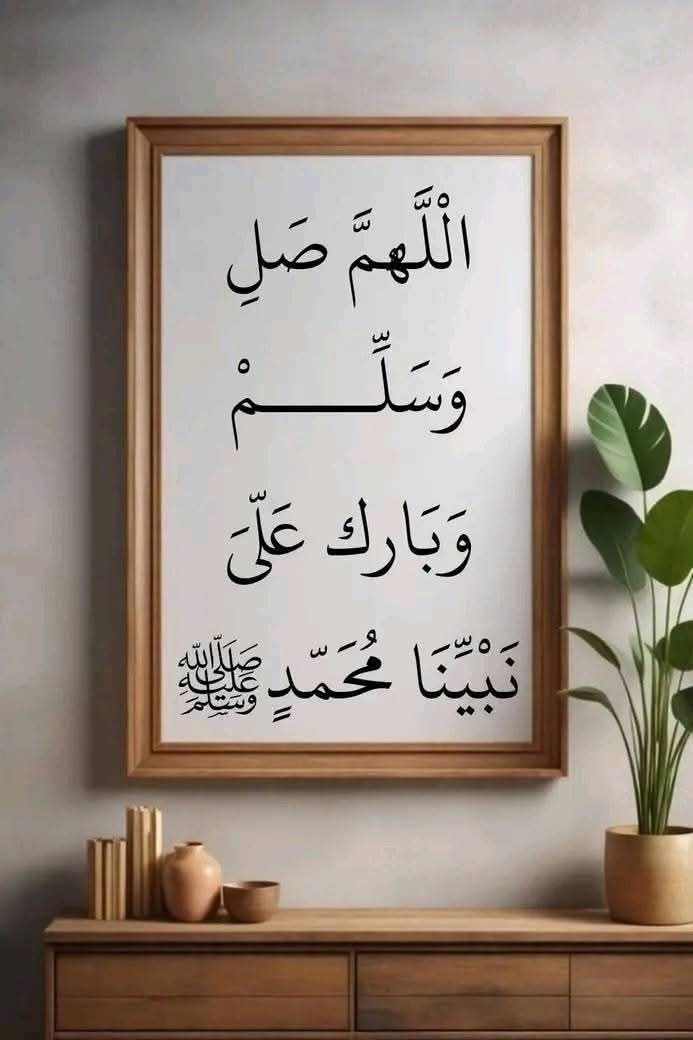 الْلَّهمَّ صَلِ
وَسَلِّـــــمْ
وَبَارك عَلّىَ
نَبْيِّنَا مُحَمّدٍ ﷺ